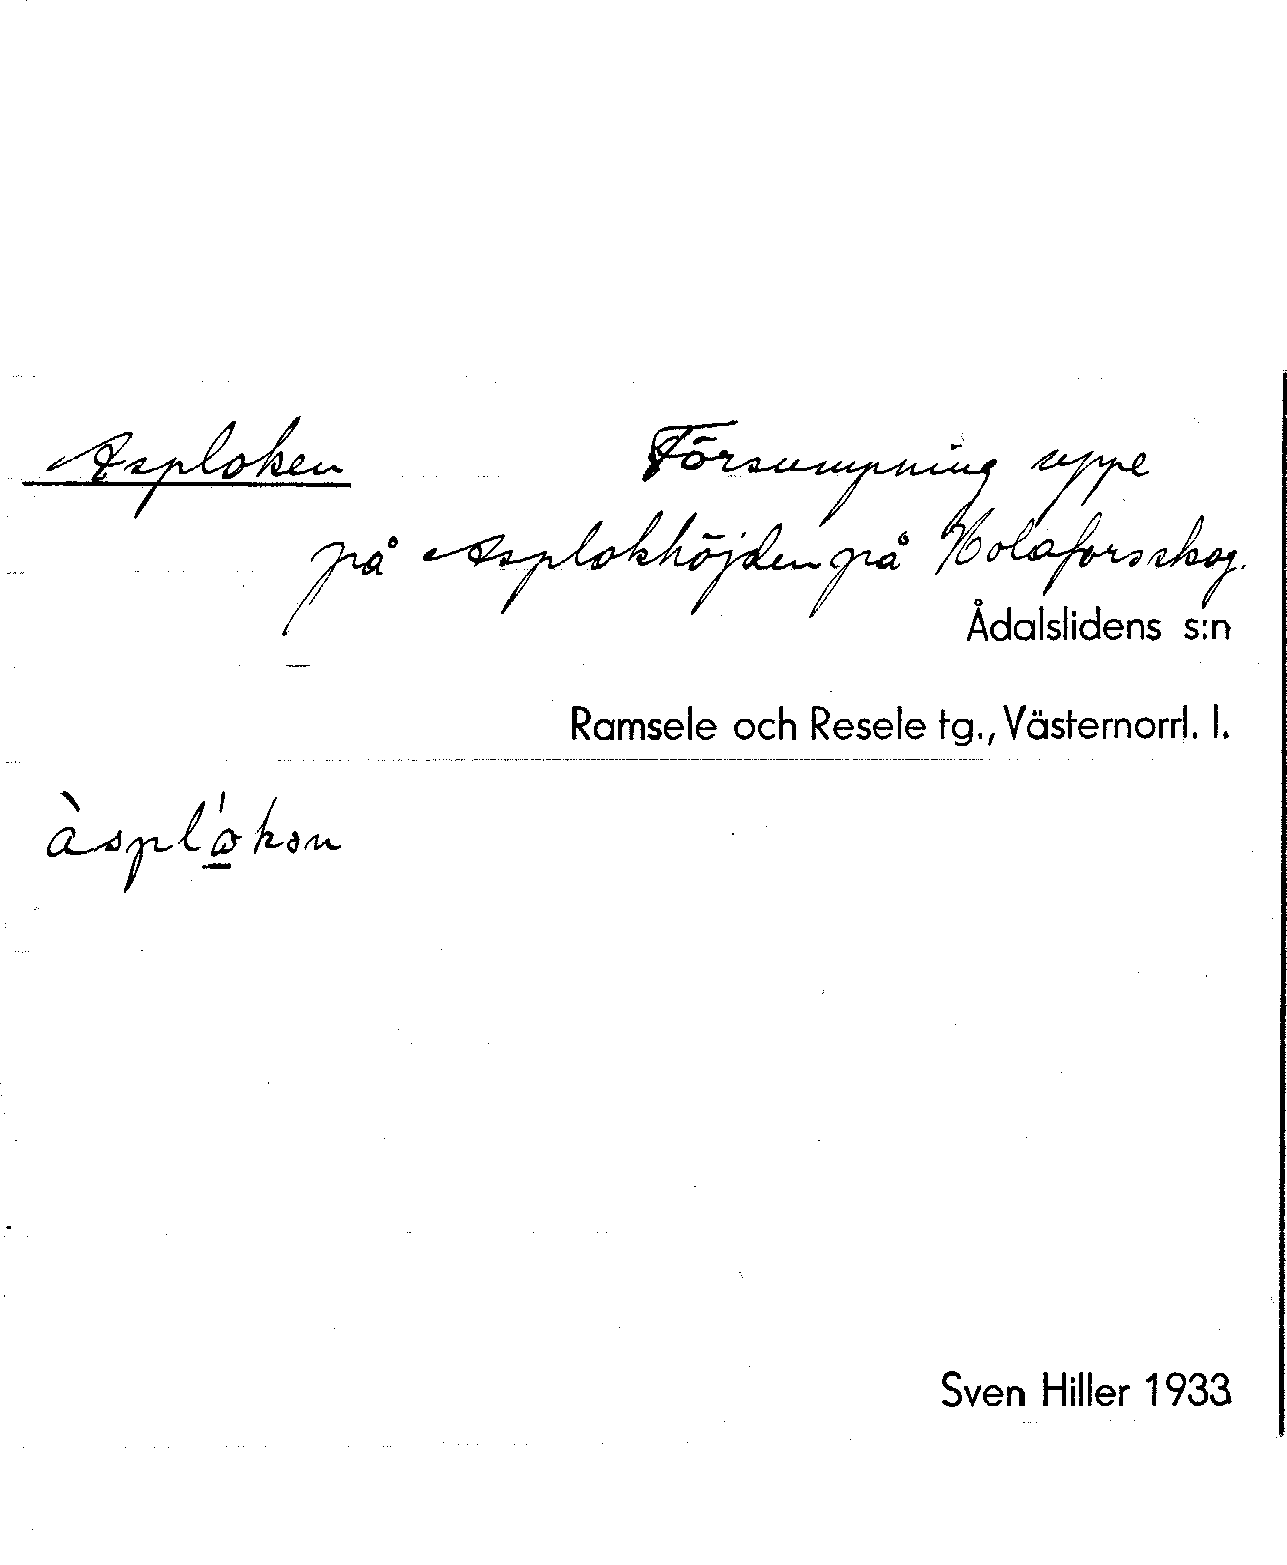 Asploken Försumpning uppe
på Asplokhöjden på Holaforsskog.
Ådalslidens s:n
Ramsele och Resele tg., Västernorrl. l.
àsplό̲kən
Sven Hiller 1933